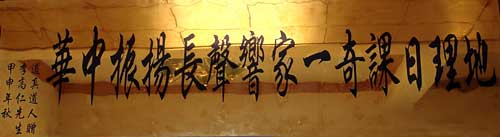 地理日課奇一家響聲長揚振中華
道真道人贈
李高仁先生
甲申年秋